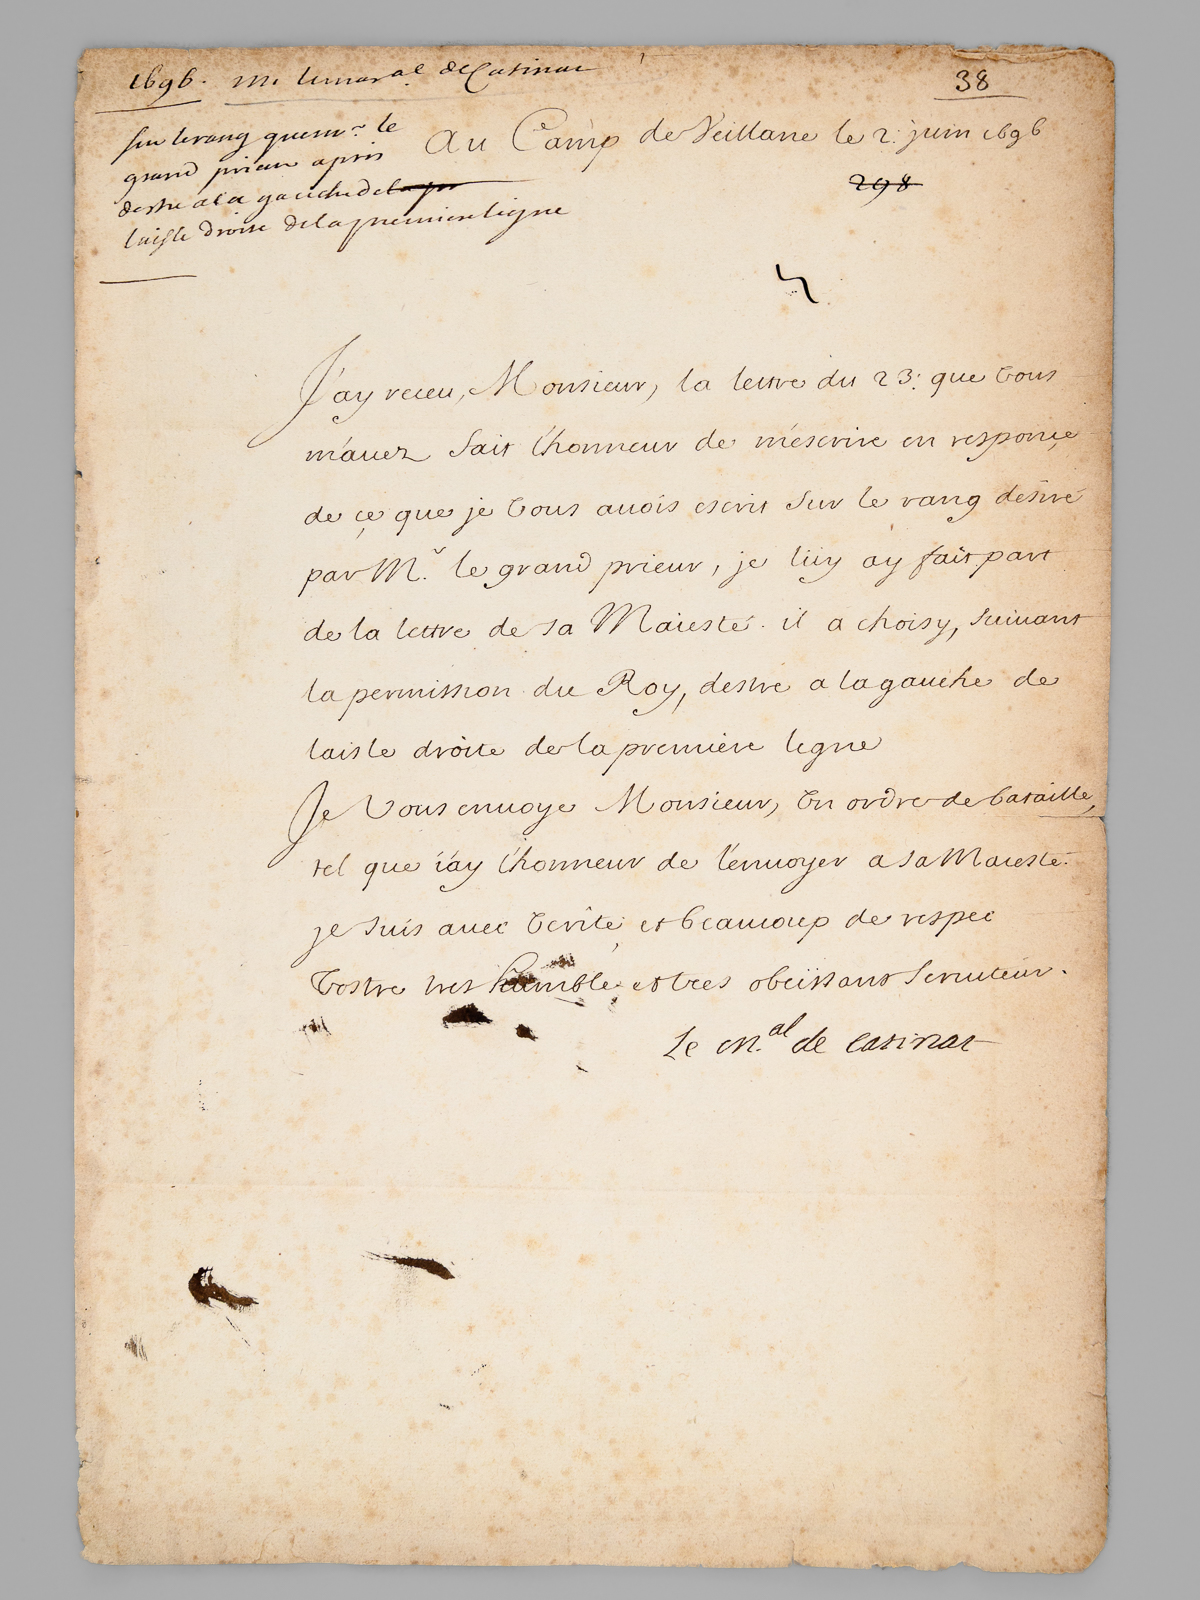 1696. M. le mar.al de Catinat
38
sur le rang que mr. le
grand prieur a pris
destre a la gauche de la pr
laisle droite de la premiere ligne
Au Camp de Veillane le 2. juin 1696
298
J'ay receu, Monsieur, la lettre du 23: que Vous
m'auez fait l'honneur de m'escrire en responce
de ce que je Vous auois escrit Sur le rang désiré
par M.r le grand prieur, je luy ay fait part
de la lettre de sa Maiesté. il a choisy, Suiuant
la permission du Roy, destre a la gauche de
laisle droite de la premiere ligne
Je Vous enuoye Monsieur, Un ordre de bataille,
tel que i'ay l'honneur de l'enuoyer a Sa Maiesté.
je Suis auec Verité et beaucoup de respec
Vostre tres humble et tres obeissant Seruiteur.
Le M.al de Catinat